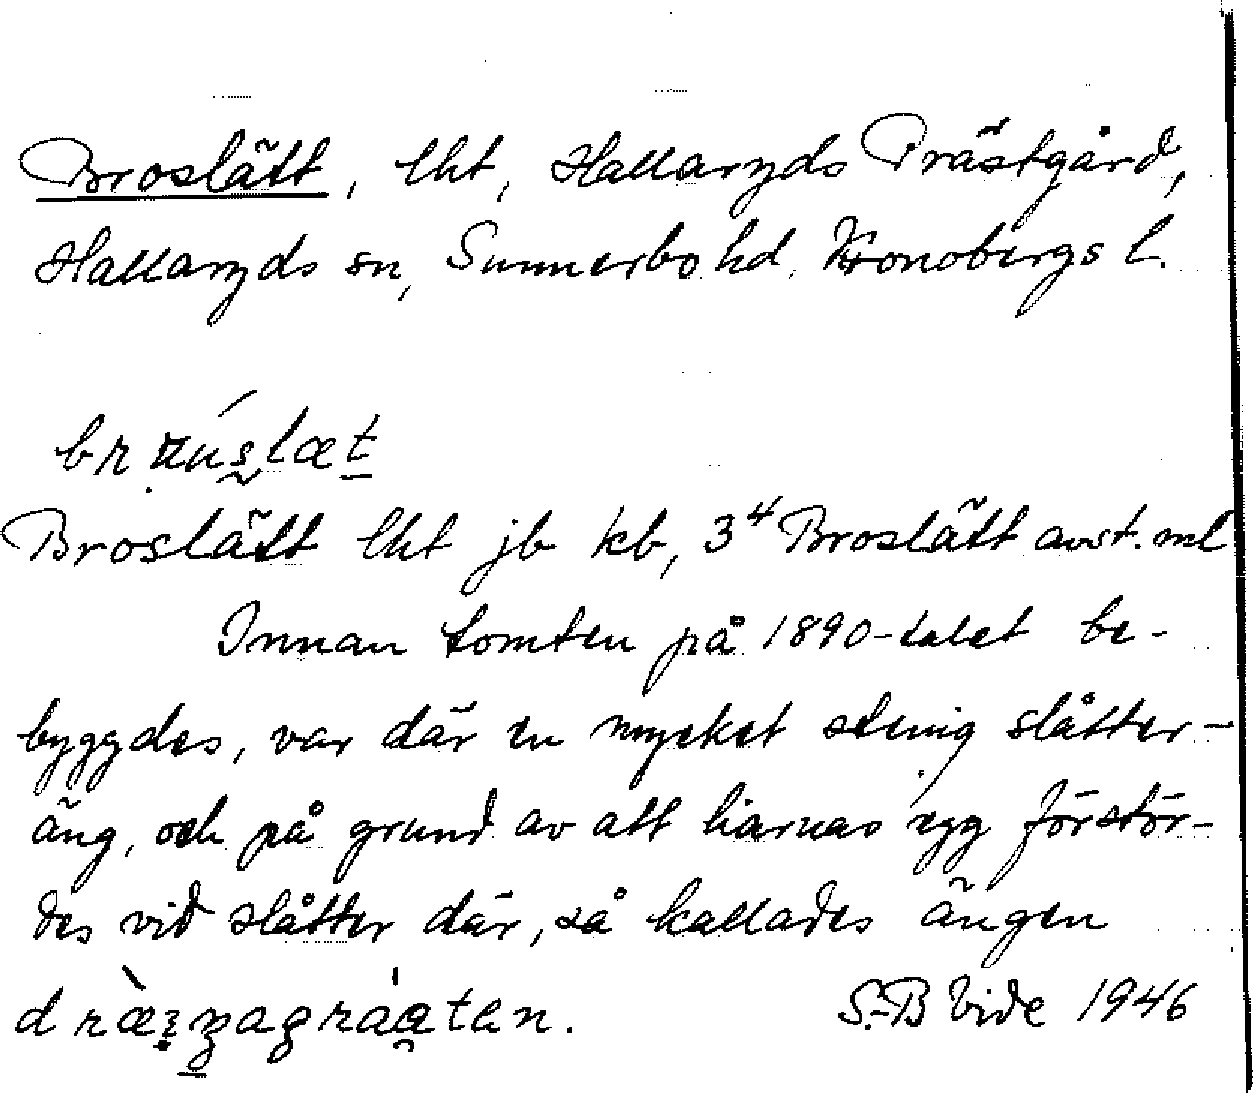 Broslätt, lht, Hallaryds Prästgård,
Hallaryds sn, Sunnerbo hd. Kronobergs l.
Broslätt lht jb kb, 3⁴ Broslätt avst. ml
Innan tomten på 1890-talet be-
byggdes, var där en mycket stenig slåtter-
äng, och på grund av att liarnas egg förstör-
des vid slåtter där, så kallades ängen
S.-B Vide 1946